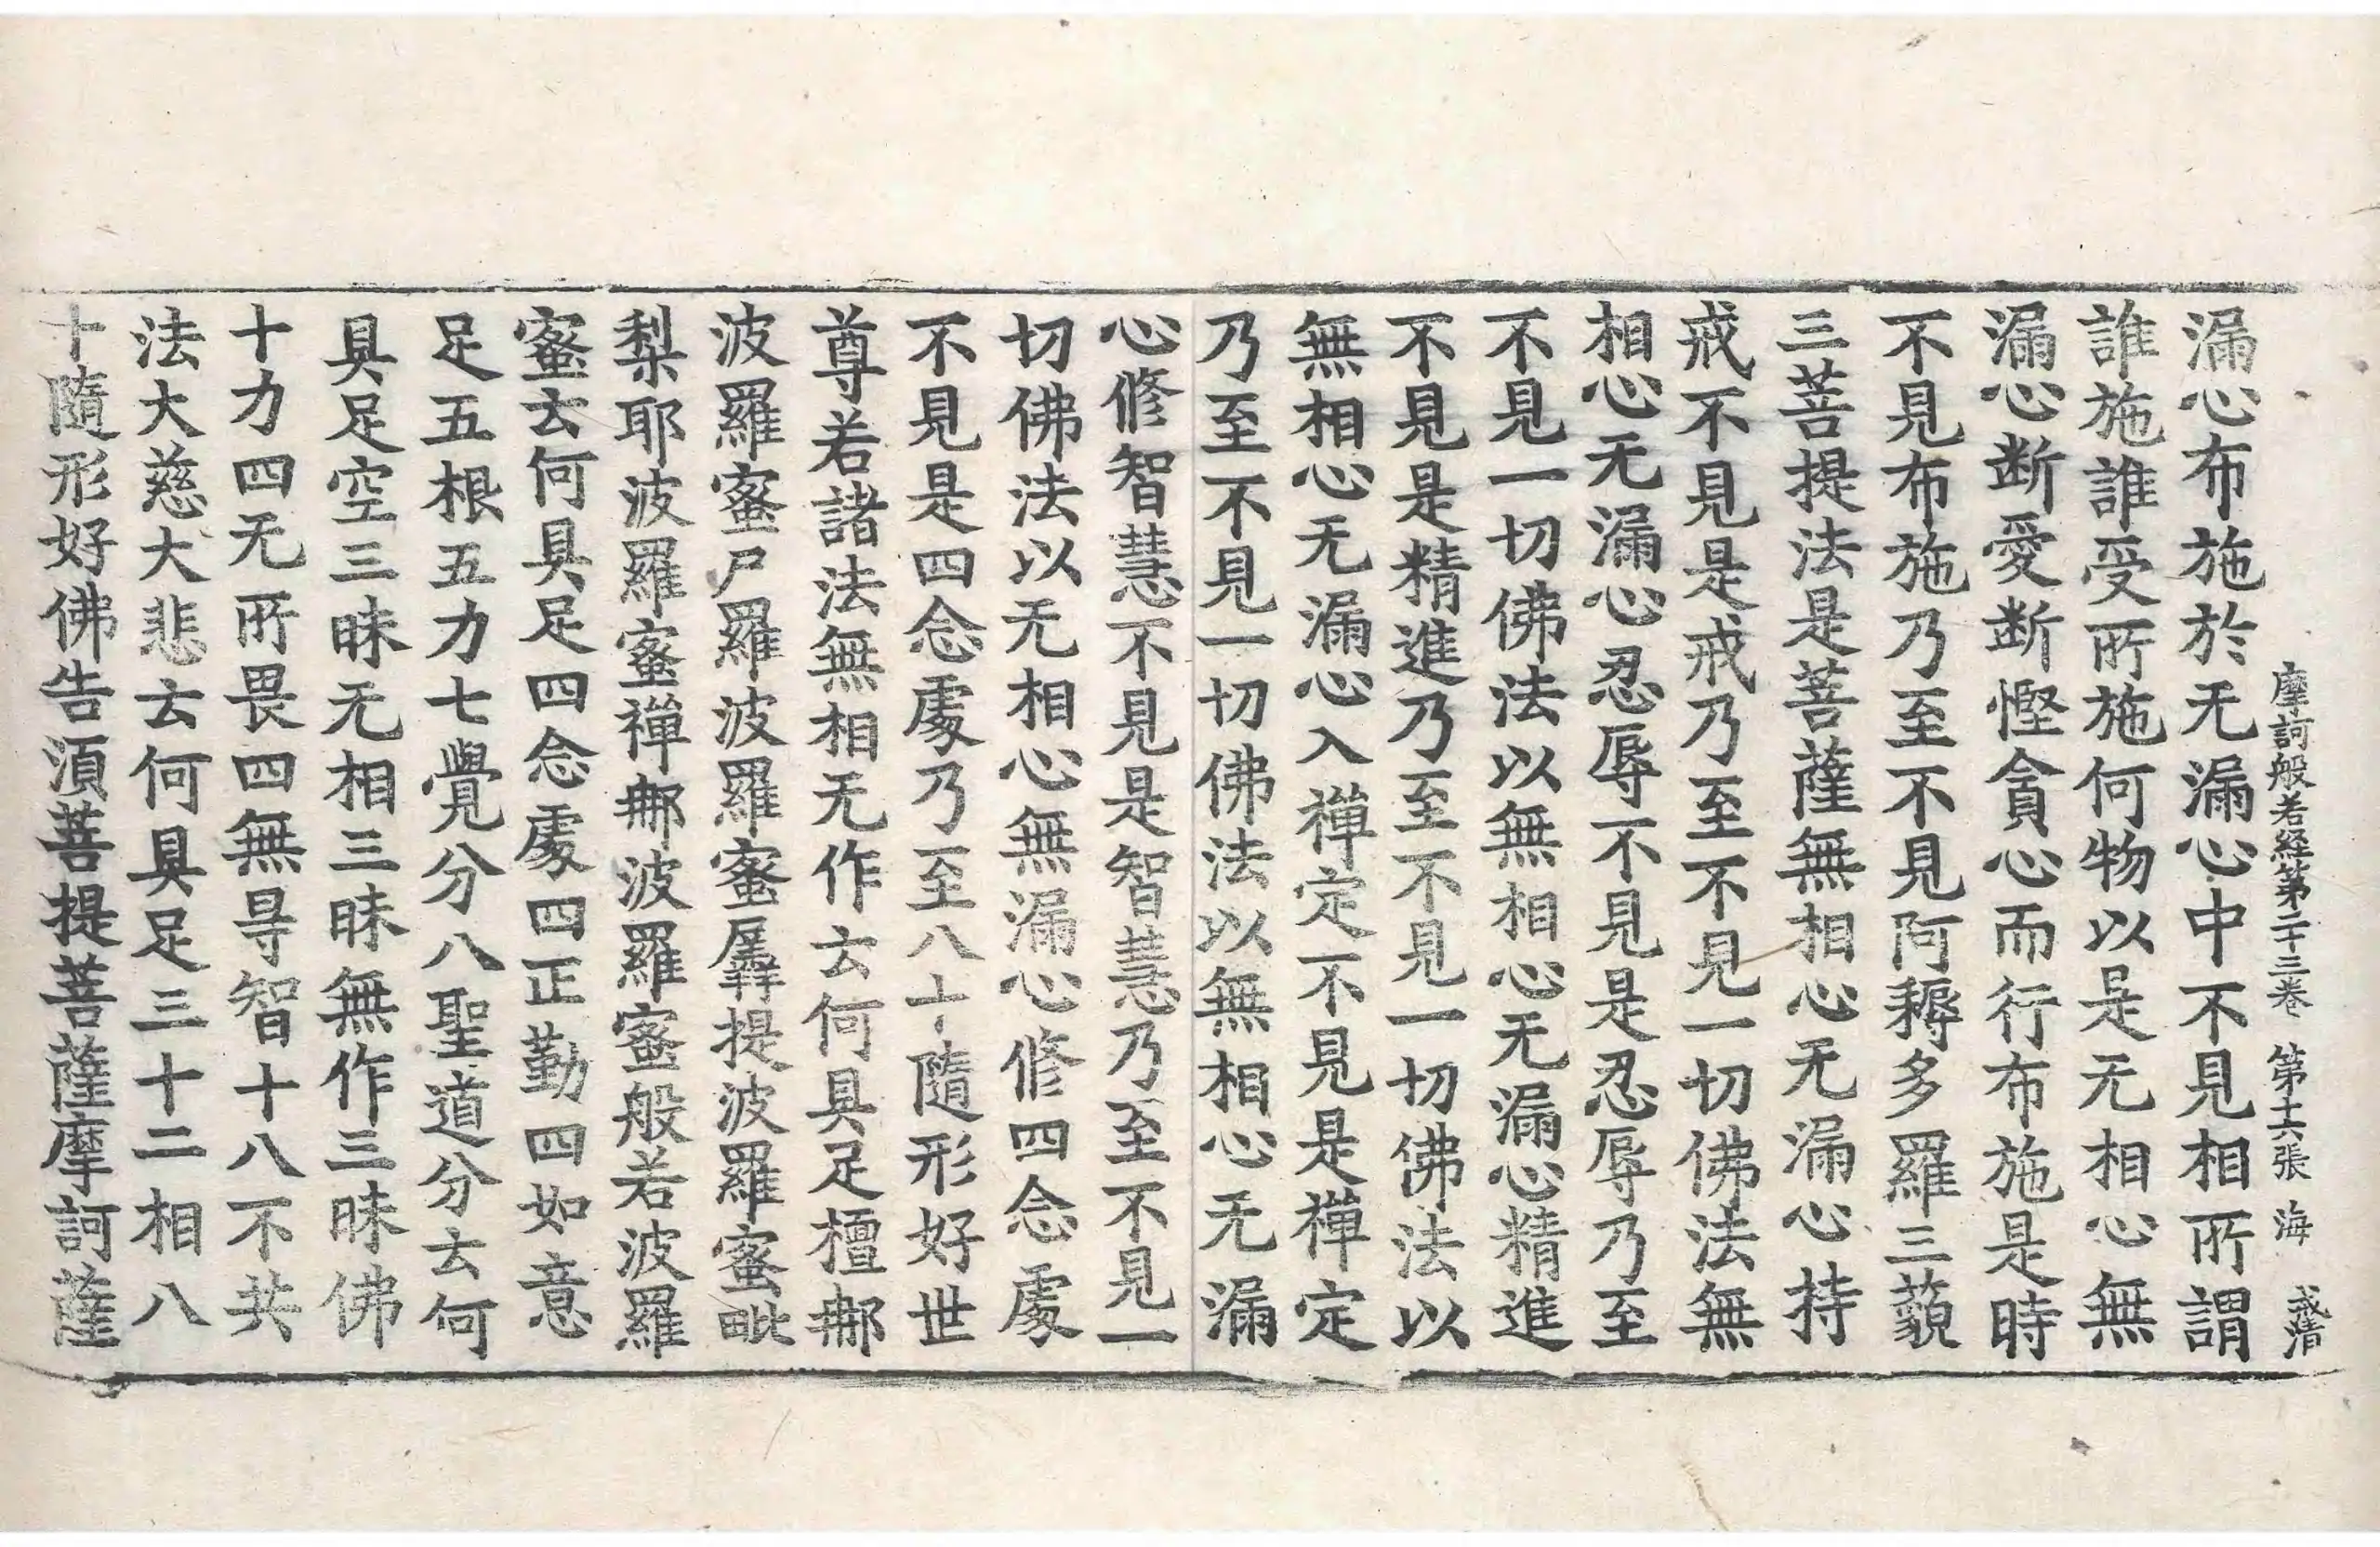 摩訶般若経第二十三巻 第十六張 海 戒清
漏心布施於无漏心中不見相所謂
誰施誰受所施何物以是无相心無
漏心断愛断慳貪心而行布施是時
不見布施乃至不見阿耨多羅三藐
三菩提法是菩薩無相心无漏心持
戒不見是戒乃至不見一切佛法無
相心无漏心忍辱不見是忍辱乃至
不見一切佛法以無相心无漏心精進
不見是精進乃至不見一切佛法以
無相心无漏心入禅定不見是禅定
乃至不見一切佛法以無相心无漏
心修智慧不見是智慧乃至不見一
切佛法以无相心無漏心修四念處
不見是四念處乃至八十随形好世
尊若諸法無相无作云何具足檀那
波羅蜜尸羅波羅蜜羼提波羅蜜毗
梨耶波羅蜜禅那波羅蜜般若波羅
蜜云何具足四念處四正勤四如意
足五根五力七覺分八聖道分云何
具足空三昧无相三昧無作三昧佛
十力四无所畏四無㝵智十八不共
法大慈大悲云何具足三十二相八
十隨形好佛告湏菩提菩薩摩訶薩